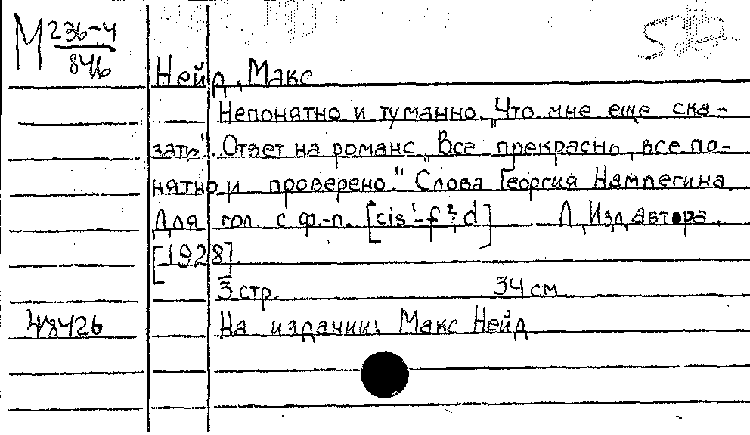 М 236-4
846
Нейд, Макс
Непонятно и туманно. "Что мне еще ска-
зать". Ответ на романс "Все прекрасно, все по-
нятно и проверено." Слова Георгия Намлегина.
Для гол. с ф.-п. [cis¹-f²; d] Л, Изд. автора.
[1928].
3 стр. 34 см
На издании: Макс Нейд
48426